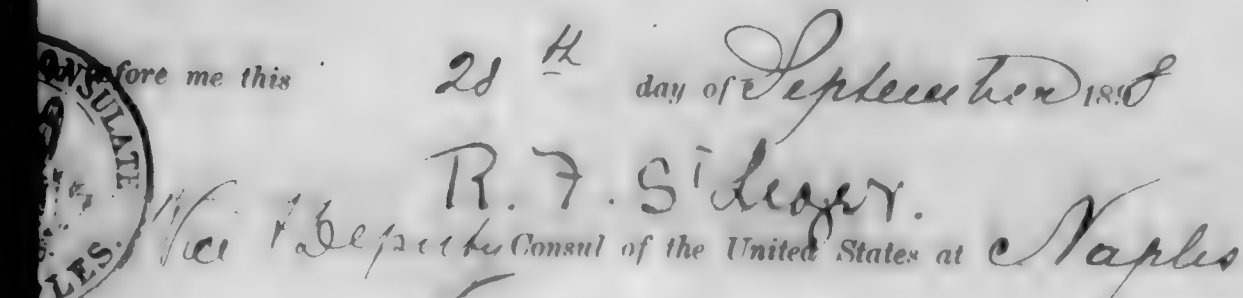 before me this 28th day of September 1898
R. F. St Leger.
Vice & Deputy Consul of the United States at Naples
CONSULATE